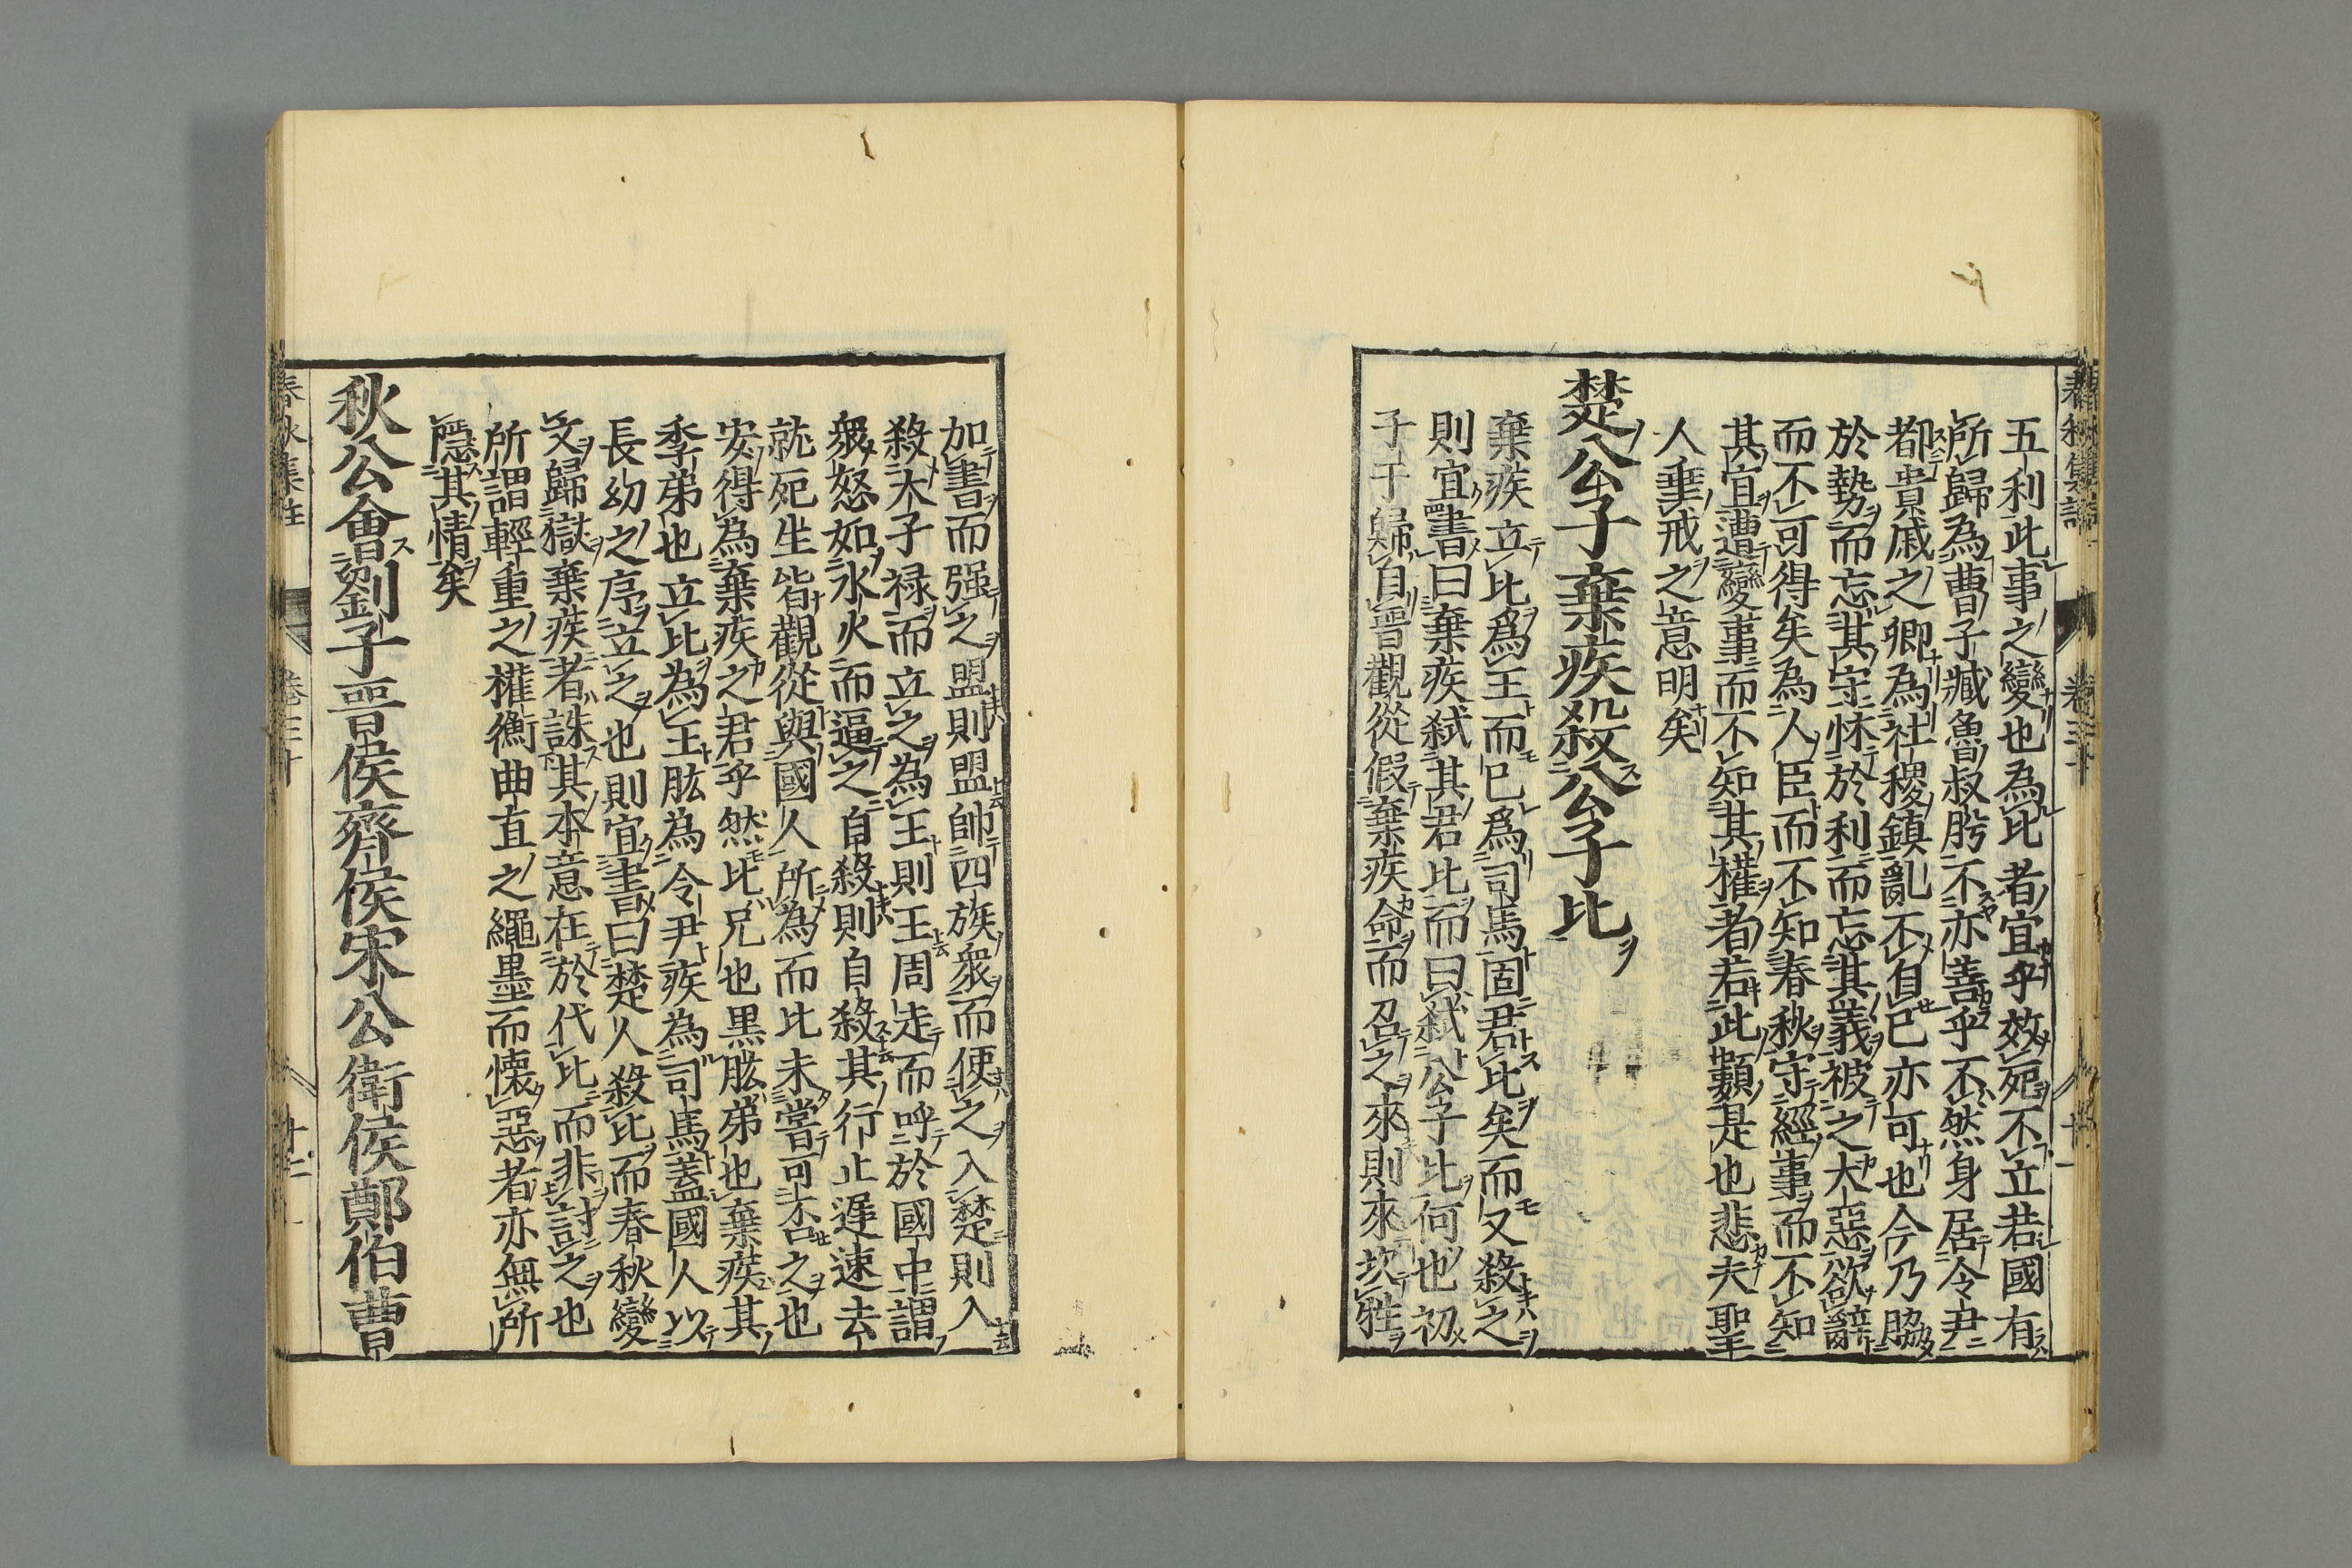 五利此事之變也為比者宜乎效死不立若國有
所歸為曹子臧魯叔肹不亦善乎不然身居令尹
都貴戚之卿為社稷鎮亂不自已亦可也今乃脇
於勢而忘其守怵於利而忘其義被之大惡欲辭
而不可得矣為人臣而不知春秋守經事而不知
其宜遭變事而不知其權者若此類是也悲夫聖
人垂戒之意明矣
楚公子棄疾殺公子比
棄疾立比爲王而已爲司馬固君比矣而又殺之
則宜書曰棄疾弑其君比而曰弑公子比何也初
子干歸自晉觀從假棄疾命而召之來則來坎牲
加書而强之盟則盟帥四族衆而使之入楚則入
殺太子祿而立之為王則王周走而呼於國中謂
衆怒如水火而逼之自殺則自殺其行止遲速去
就死生皆觀從與國人所為而比未嘗可否之也
安得為棄疾之君乎然比兄也黒肱弟也棄疾其
季弟也立比為王肱為令尹疾為司馬蓋國人以
長幼之序立之也則宜書曰楚人殺比而春秋變
文歸獄棄疾者誅其本意在於代比而非討之也
所謂輕重之權衡曲直之繩墨而懐惡者亦無所
隱其情矣
秋公會劉子晉侯齊侯宋公衛侯鄭伯曹
春秋集註 卷三十 十二